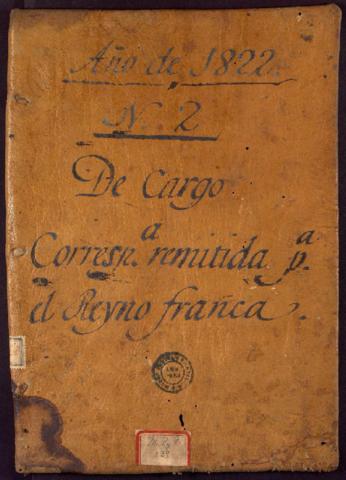 Año de 1822
N. 2
De Cargo
Corresn.ª remitida p.ª
el Reyno franca.